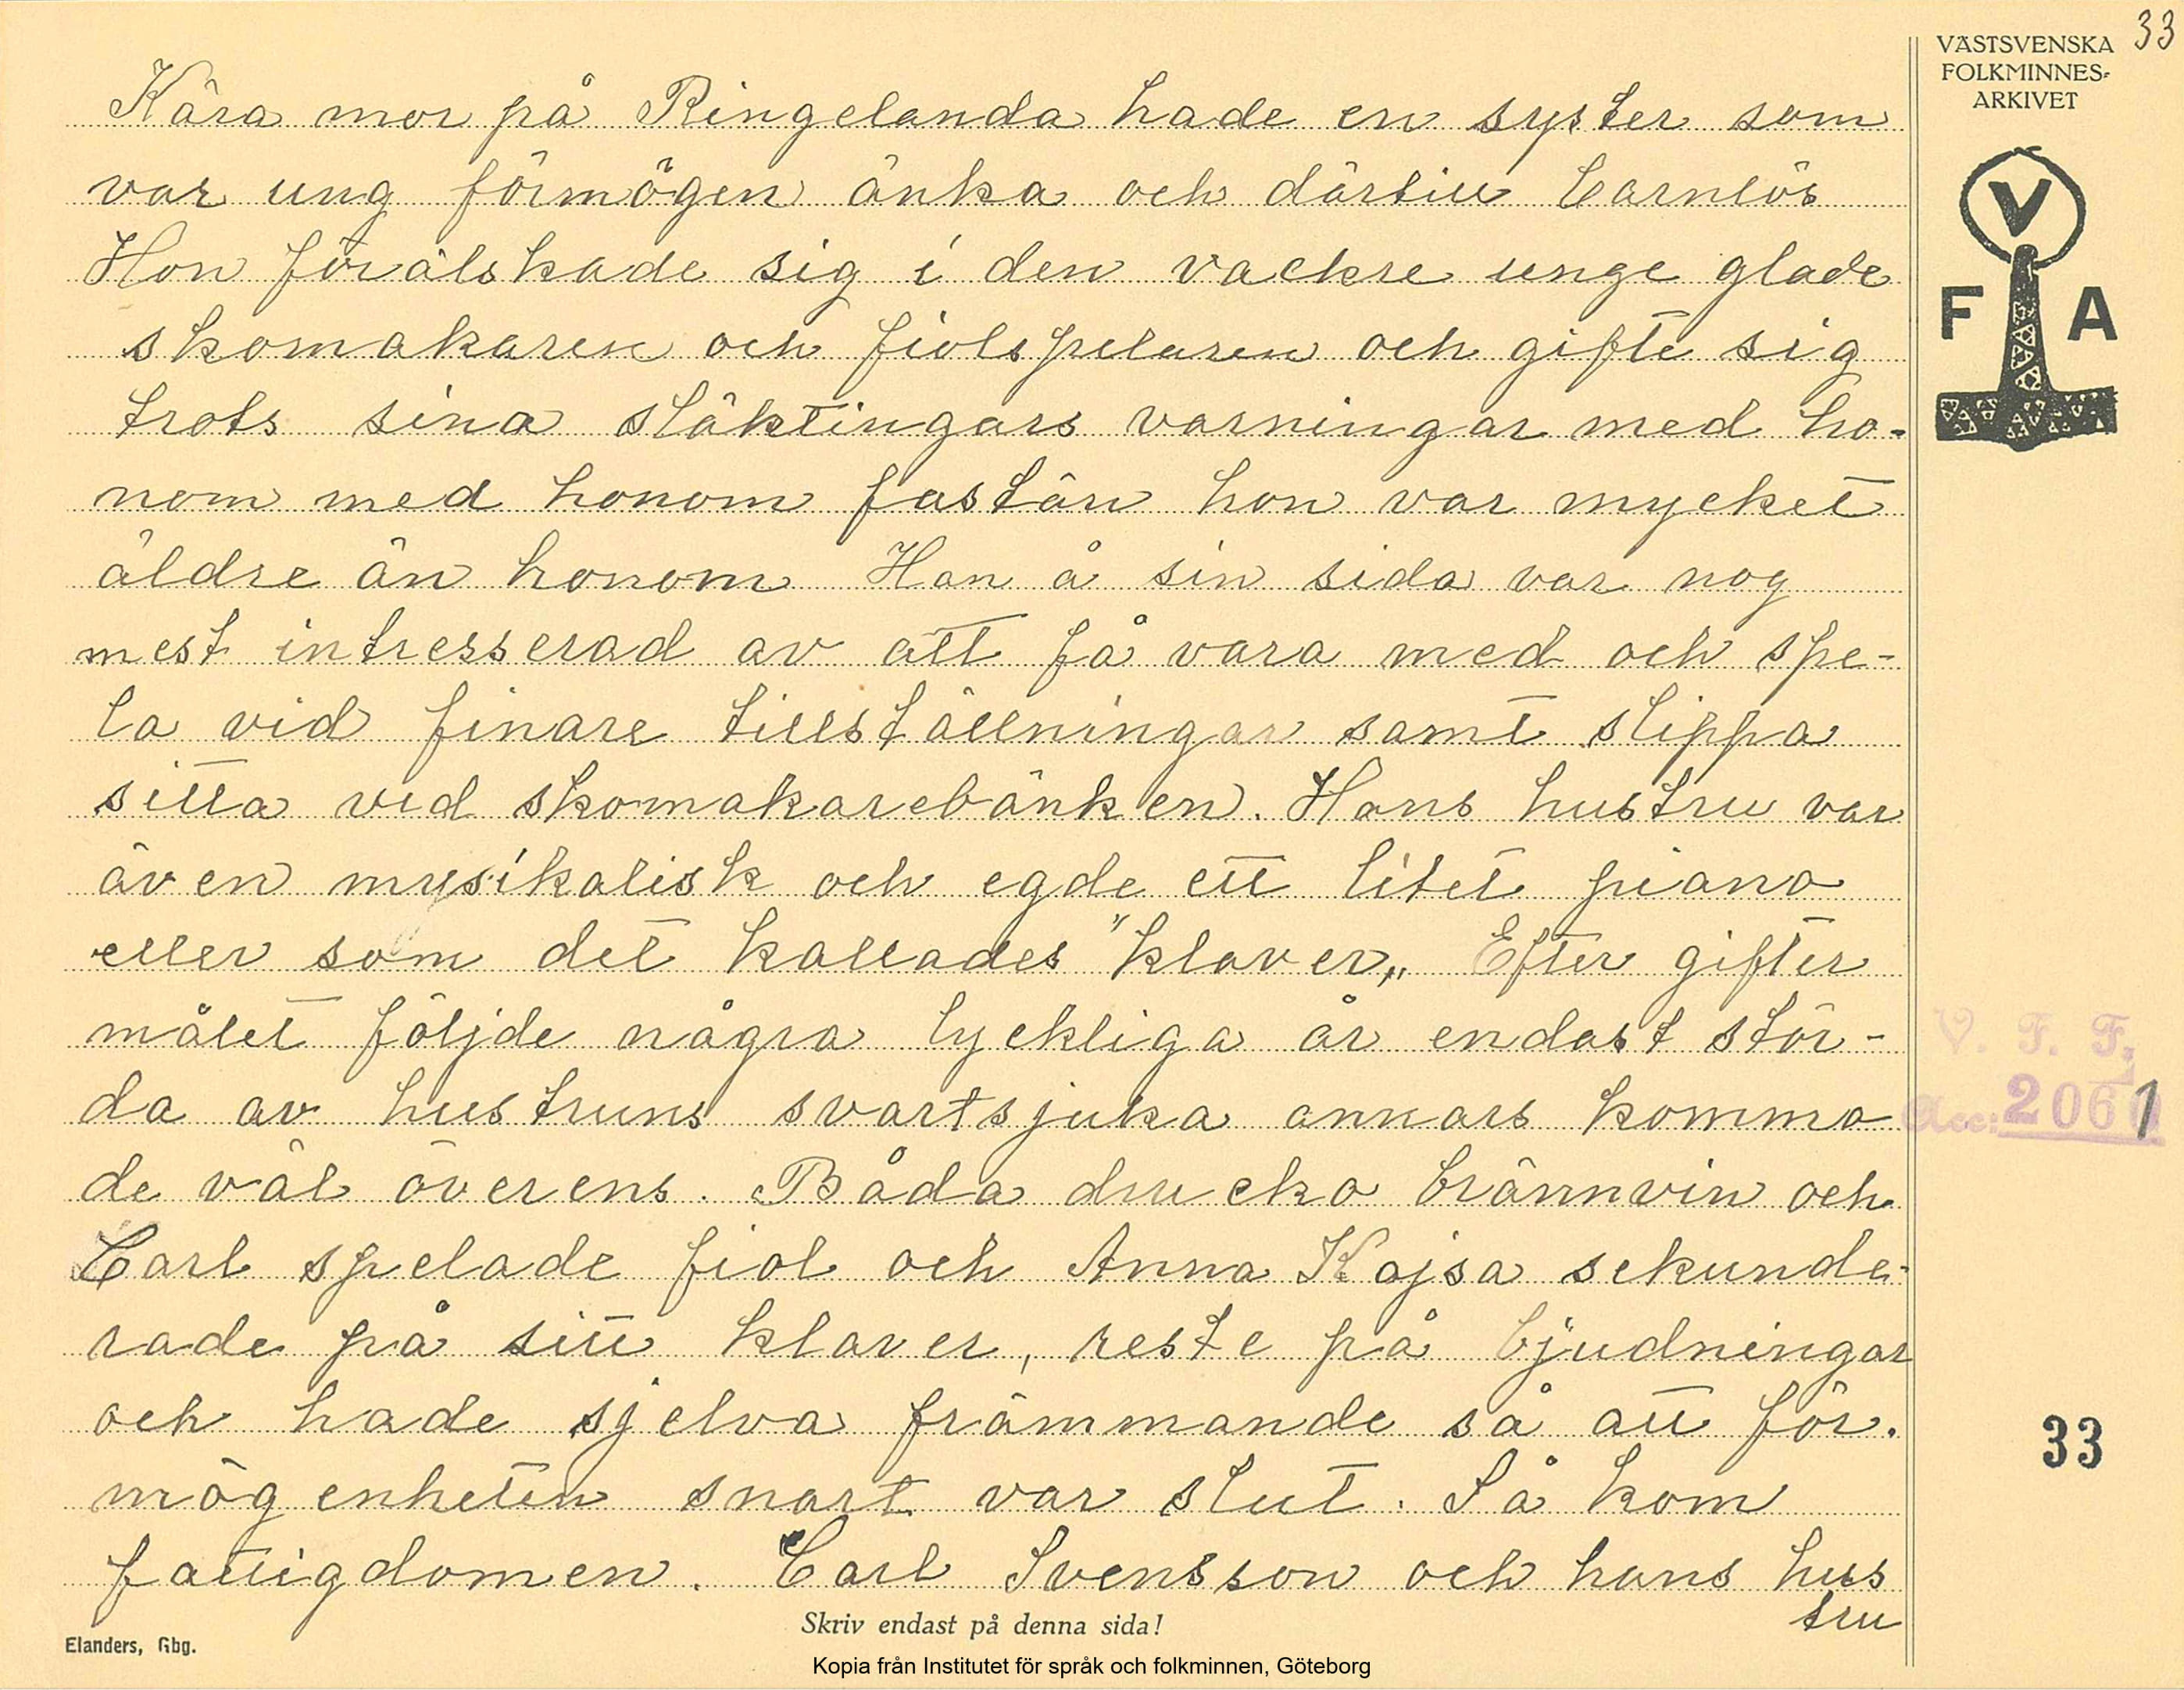 33
VÄSTSVENSKA
FOLKMINNES-
ARKIVET
V
F A
Kära mor på Ringelanda hade en syster som
var ung förmögen änka och därtill barnlös
Hon förälskade sig i den vackre unge glade
skomakaren och fiolspelaren och gifte sig
trots sina släktingars varningar med ho-
nom med honom fastän hon var mycket
äldre än honom Han å sin sida var nog
mest intresserad av att få vara med och spe-
la vid finare tillställningar samt slippa
sitta vid skomakarebänken. Hans hustru var
även mysikalisk och egde ett litet piano
eller som det kallades "klaver„ Efter gifter
målet följde några lyckliga år endast stör-
da av hustruns svartsjuka annars komma
de väl överens. Båda drucko brännvin och
Carl spelade fiol och Anna Kajsa sekunde-
rade på sitt klaver, reste på bjudningar
och hade sjelva främmande så att för.
mögenheten snart var slut. Så kom
fattigdomen. Carl Svensson och hans hus
tru
V. F. F.
Acc: 2061
33
Skriv endast på denna sida!
Elanders, Gbg.
Kopia från Institutet för språk och folkminnen, Göteborg